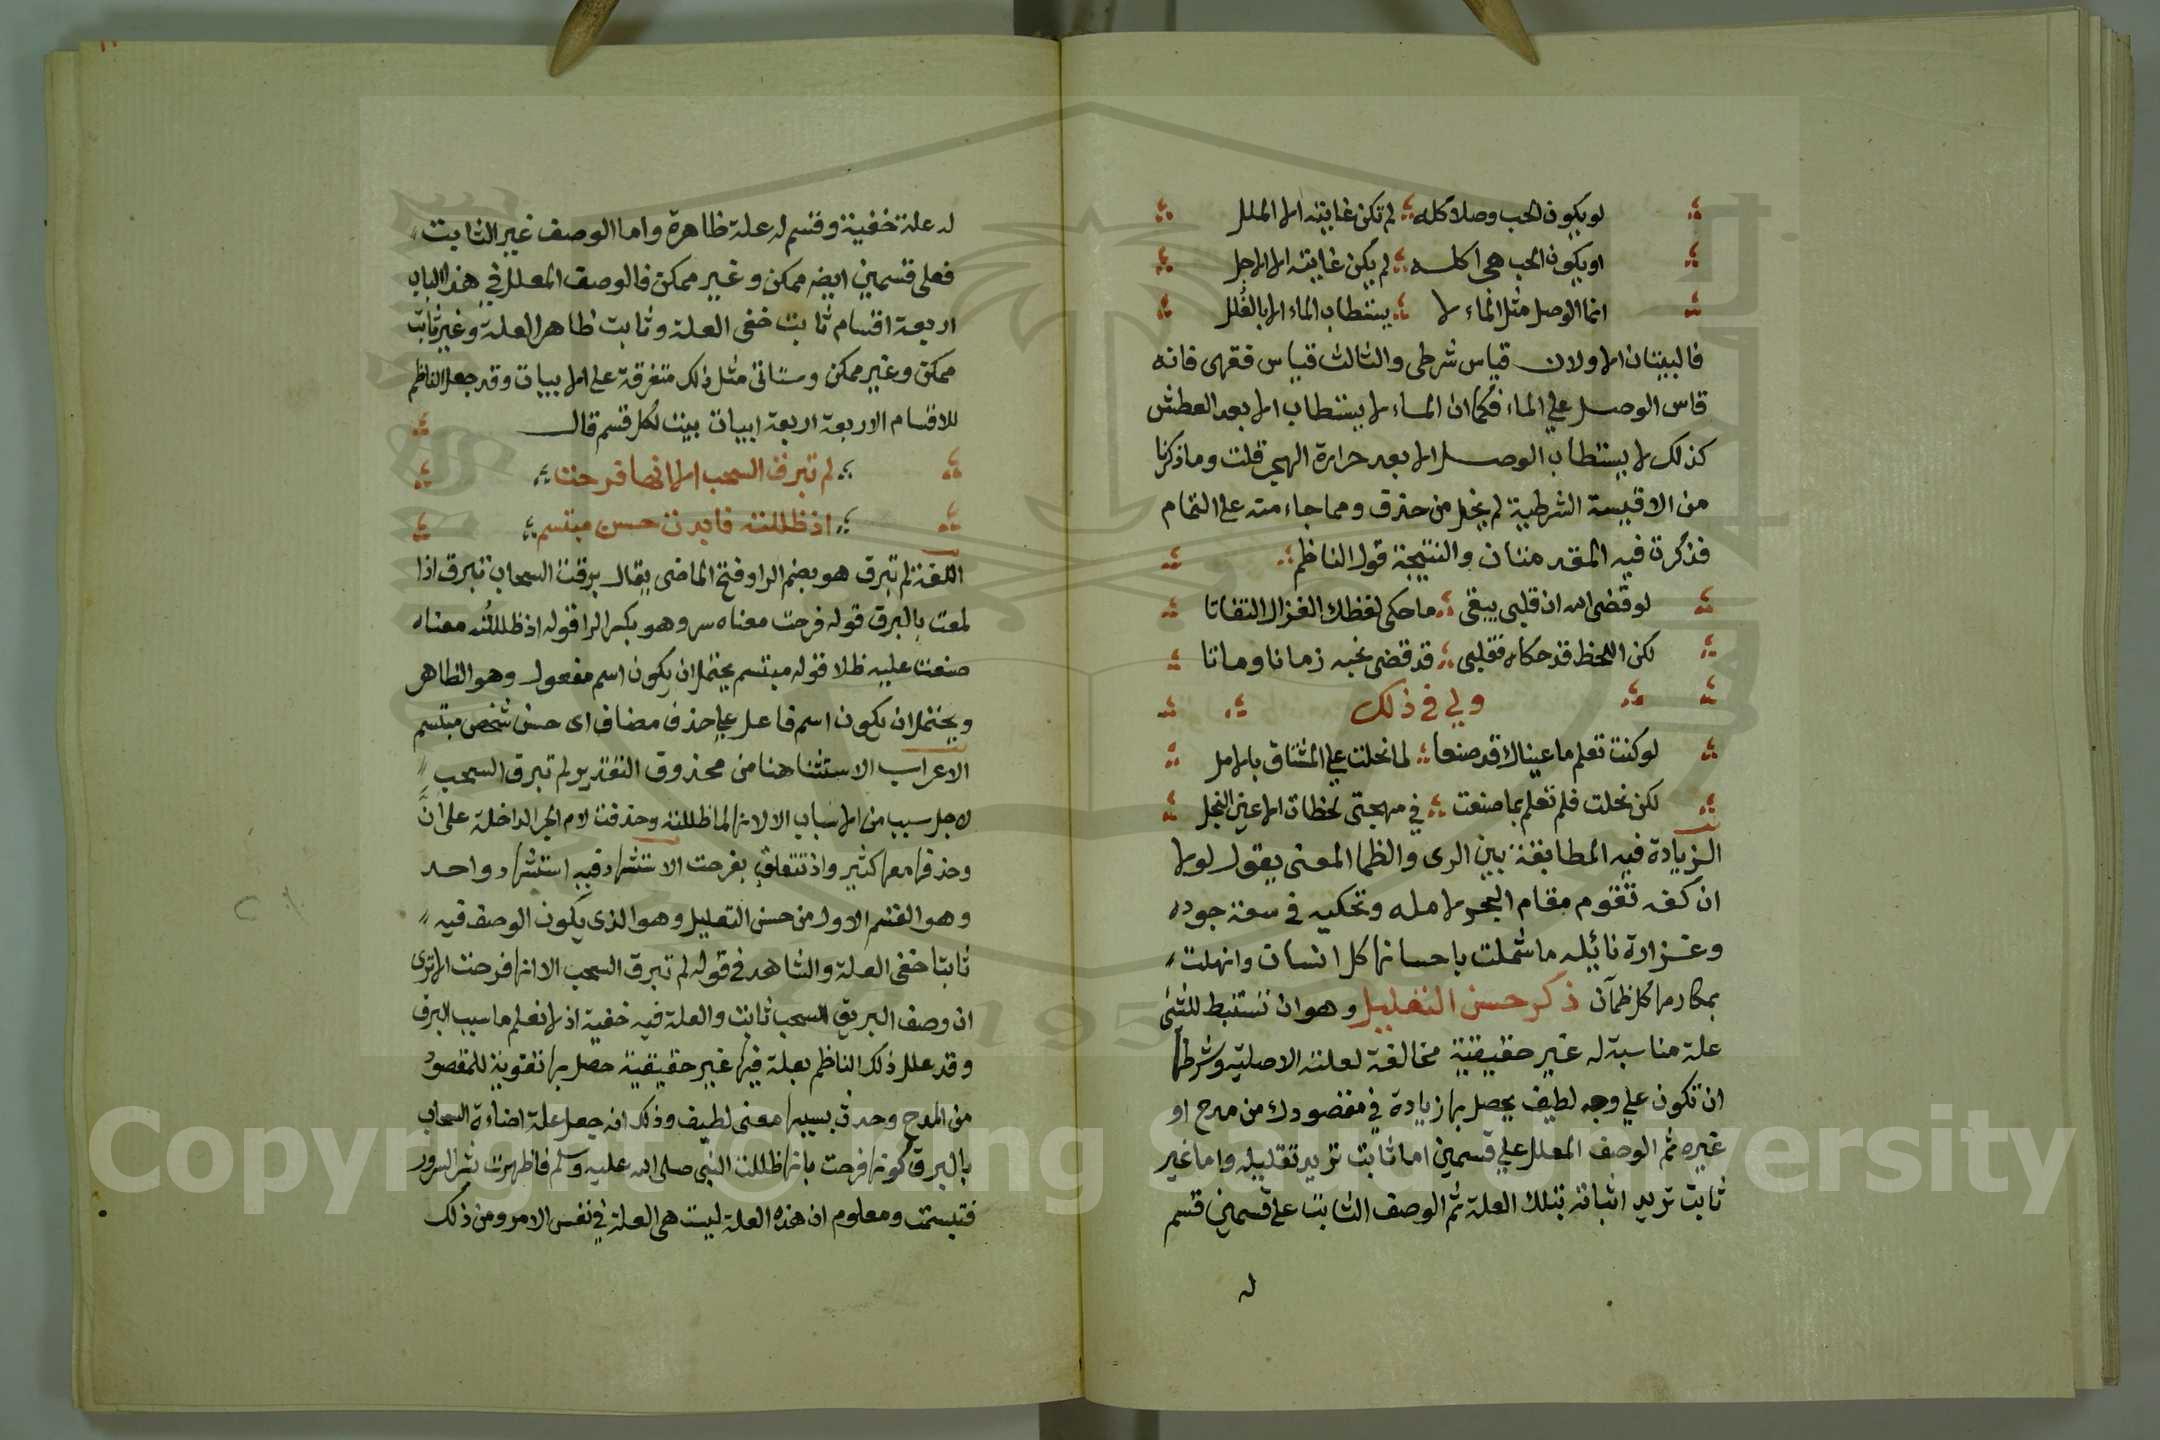 لو يكون الحب وصلا كله لم تكن غايته الا الملل
او يكون الحب هجرا كله لم يكن غايته الا الاجل
انما الوصل مثل الماء لا يستطاب الماء الا بالغلل
فالبيتان الاولان قياس شرطى والثالث قياس فقهى فانه
قاس الوصل على الماء فكما ان الماء لا يستطاب الا بعد العطش
كذلك لا يستطاب الوصل الا بعد حرارة الهجر قلت وما ذكرنا
من الاقيسة الشرطية لم يخل من حذف ومما جاء منه على التمام
فذكرت فيه المقدمتان والنتيجة قول الناظم
لو قضى الله ان قلبى يبقى ما حكى لحظك الغزال التفاتا
لكن اللحظ قد حكاه فقلبى قد قضى نحبه زمانا وماتا
ولى فى ذلك
لو كنت تعلم ما عيناك قد صنعا لما بخلت على المشتاق بالامل
لكن بخلت فلم تعلم بما صنعت في مهجتى لحظات الاعين النجل
الزيادة فيه المطابقة بين الرى والظما المعنى يقول لولا
ان كفه تقوم مقام البحر لامله وتحكيه فى سعة جوده
وغزارة نائله ما شملت باحسانها كل انسان وانهلت
بمكارمها كل ظمآن ذكر حسن التعليل وهو ان تستنبط للشئ
علة مناسبة له غير حقيقية مخالفة لعلته الاصلية وشرطها
ان تكون على وجه لطيف يحصل بها زيادة في مقصودك من مدح او
غيره ثم الوصف المعلل على قسمين اما ثابت تريد تعليله واما غير
ثابت تريد اثباته بتلك العلة ثم الوصف الثابت على قسمين قسم
له
له علة خفية وقسم له علة ظاهرة واما الوصف غير الثابت
فعلى قسمين ايضا ممكن وغير ممكن فالوصف المعلل في هذا الباب
اربعة اقسام ثابت خفى العلة وثابت ظاهر العلة وغير ثابت
ممكن وغير ممكن وستاتى مثل ذلك متفرقة على الابيات وقد جعل الناظم
للاقسام الاربعة اربعة ابيات بيت لكل قسم قال
لم تبرق السحب الا انها فرحت
اذ ظللته فابدت حسن مبتسم
اللغة لم تبرق هو بضم الرا وفتح الماضى يقال برقت السحاب تبرق اذا
لمعت بالبرق قوله فرحت معناه سر وهو بكسر الرا قوله اذ ظللته معناه
صنعت عليه ظلا قوله مبتسم يحتمل ان يكون اسم مفعول وهو الظاهر
ويحتمل ان يكون اسم فاعل على حذف مضاف اى حسن شخص مبتسم
الاعراب الاستثنا هنا من محذوف التقدير لم تبرق السحب
لاجل سبب من الاسباب الا لانها لما ظللته وحذفت لام الجر الداخلة على أنّ
وحذفها معها كثير واذ تتعلق بفرحت الاستشهاد فيه استشهاد واحد
وهو القسم الاول من حسن التعليل وهو الذى يكون الوصف فيه
ثابتا خفى العلة والشاهد فى قوله لم تبرق السحب الا انها فرحت الا ترى
ان وصف البريق للسحب ثابت والعلة فيه خفية اذ لا نعلم ما سبب البرق
وقد علل ذلك الناظم بعلة فيها غير حقيقية حصل بها تقوية للمقصود
من المدح وحدث بسببها معنى لطيف وذلك انه جعل علة اضاءة السحاب
بالبرق كونها فرحت بانها ظللت النبى صلى الله عليه وسلم فاظهرت بشر السرور
فتبسمت ومعلوم ان هذه العلة ليست هى العلة في نفس الامر ومن ذلك
Copyright © King Saud University